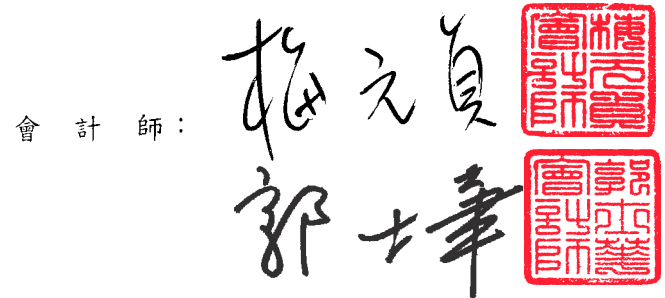 會計師：
梅元貞
梅元貞會計師
郭士華
郭士華會計師